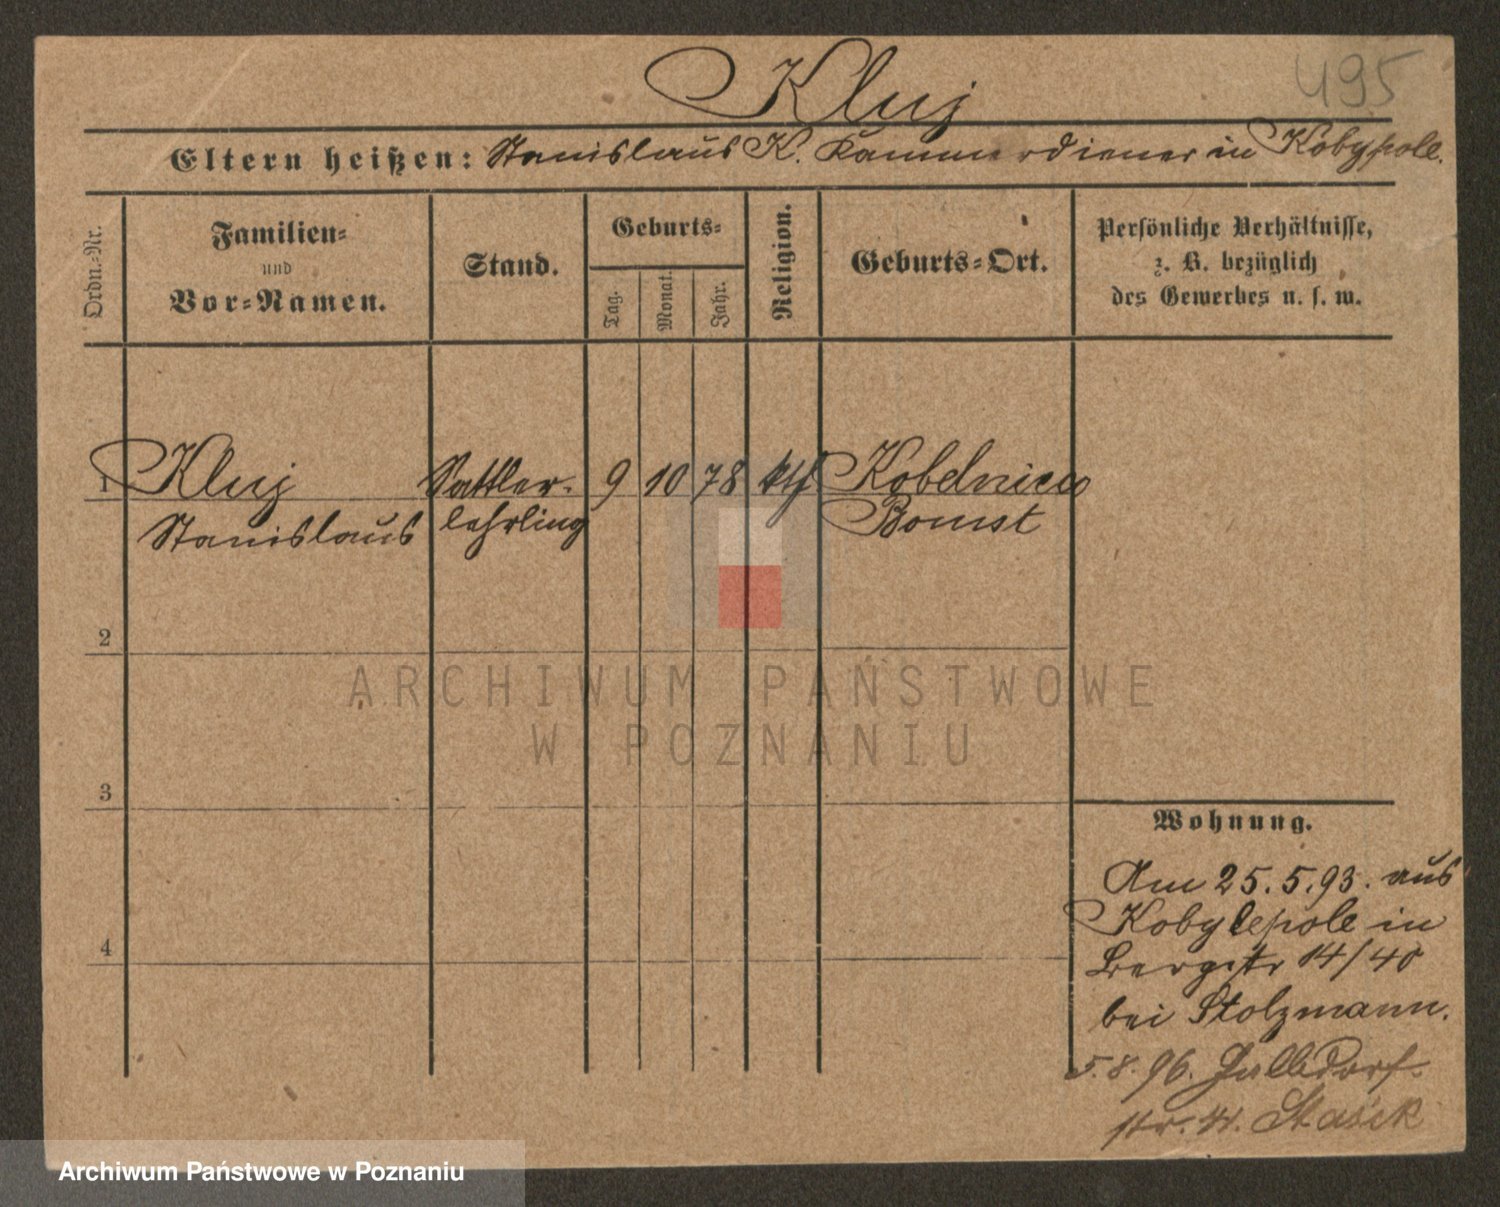 Kluj
495
Eltern heißen: Stanislaus K. Kammerdiener in Kobypole.
Ordn.-Nr.
Familien-
und
Vor-Namen.
Stand.
Geburts-
Tag.
Monat.
Jahr.
Religion.
Geburts-Ort.
Persönliche Verhältnisse,
z. B. bezüglich
des Gewerbes u. s. w.
1 Kluj Sattler- 9 10 78 kth Kobelnicco
Stanislaus lehrling Bomst
2
3
4
Wohnung.
Am 25.5.93. aus
Kobylepole in
Bergstr 14/40
bei Stolzmann.
5.8.96. Halbdorf-
str. Stasick
ARCHIWUM PAŃSTWOWE
W POZNANIU
Archiwum Państwowe w Poznaniu